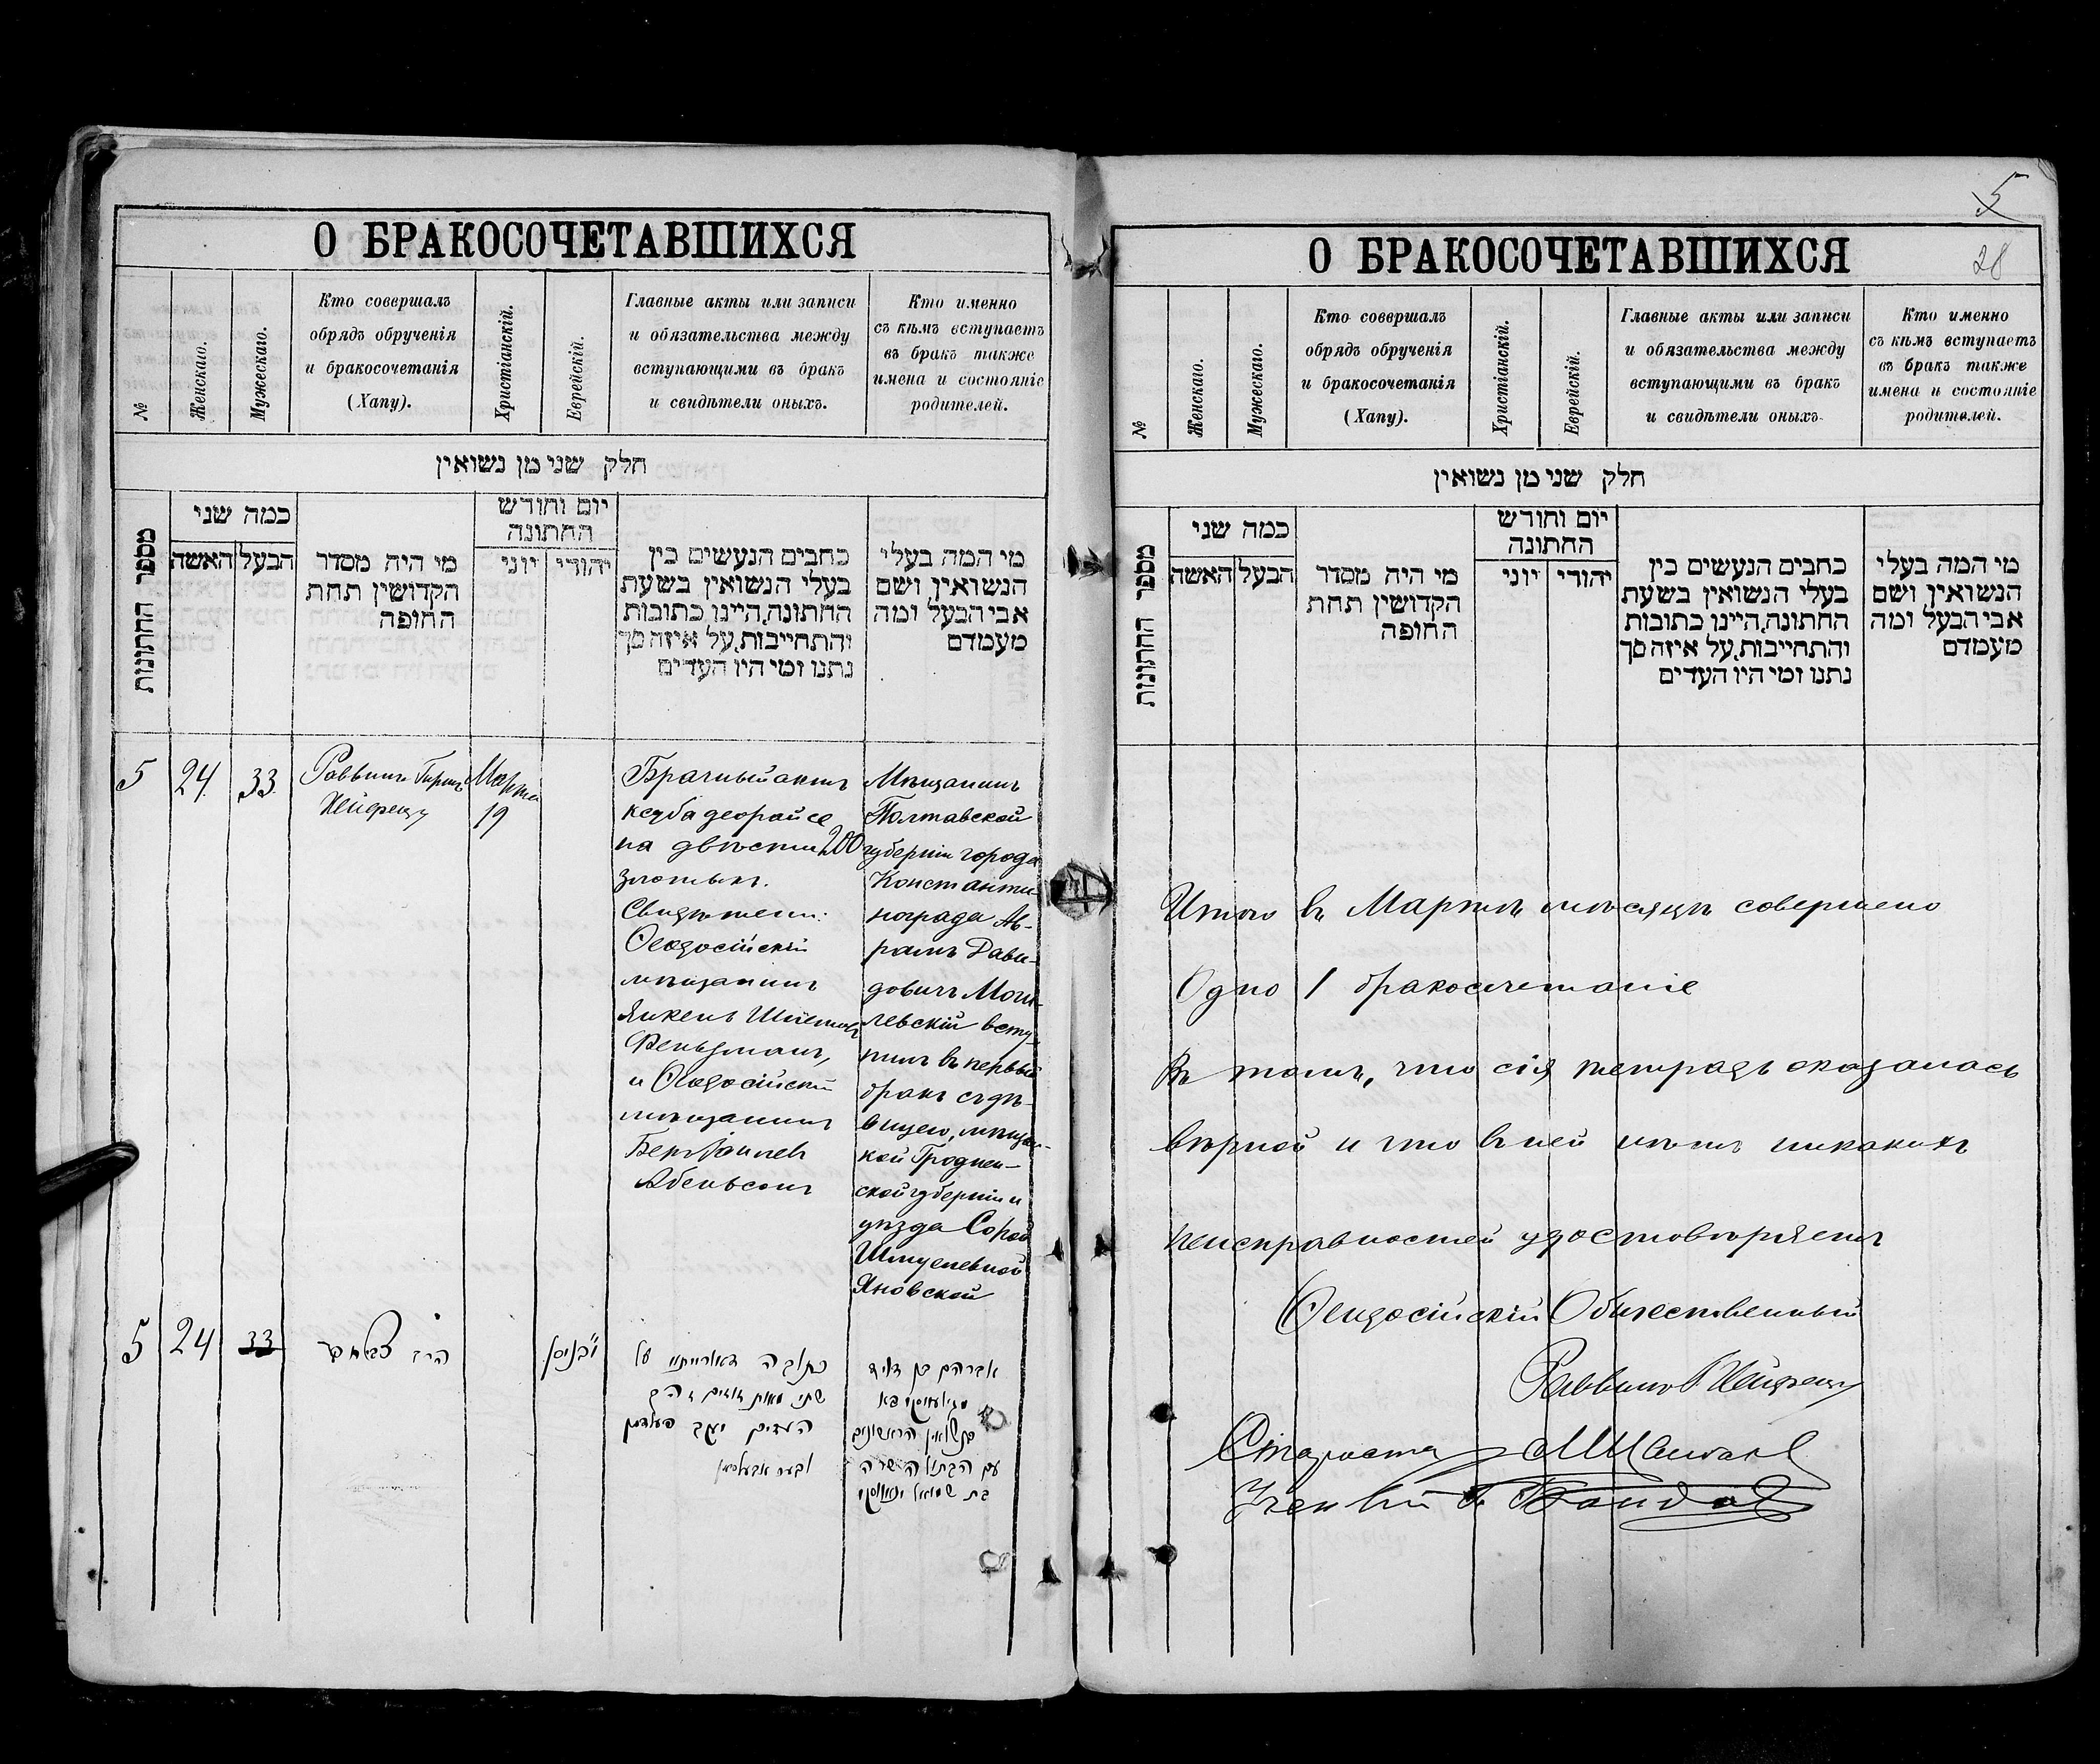 О БРАКОСОЧЕТАВШИХСЯ
№
Женскаго.
Мужескаго.
Кто совершалъ
обрядъ обрученія
и бракосочетанія
(Хапу).
Христіанскій.
Еврейскій.
Главные акты или записи
и обязательства между
вступающими въ бракъ
и свидѣтели оныхъ.
Кто именно
съ кѣмъ вступаетъ
въ бракъ также
имена и состояніе
родителей.
חלק שני מן נשואין
מספר החתונות
כמה שני
הבעל
האשה
מי היה מסדר
הקדושין תחת
החופה
יום וחודש
החתונה
יהודי
יוני
כתבים הנעשים בין
בעלי הנשואין בשעת
החתונה,היינו כתובות
והתחייבות,על איזה סך
נתנו ומי היו העדים
מי המה בעלי
הנשואין ושם
אבי הבעל ומה
מעמדם
5
24
33
Раввинъ Гиршъ
Хейфецъ
Марта
19
Брачный актъ
ксуба деорайсе
на двѣсти 200
злотыхъ.
Свидѣтели:
Ѳеодосійскій
мѣщанинъ
Янкель
Фельдманъ,
и Ѳеодосійскій
мѣщанинъ
Беръ
Абельсонъ
Мѣщанинъ
Полтавской
губерніи города
Константи-
нограда Ав-
рамъ Дави-
довичъ Моги-
левскій всту-
пилъ въ первый
бракъ съ дѣ-
вицею, мѣщан-
кой Гроднен-
ской губерніи и
уѣзда Сорой
Шмуелевной
Яновской
5
24
33
הרב
י"ב ניסן
כתובה דאורייתא על
שתי מאות זהב
העדים יעקב פעלדמן
ובער אבעלסאן
אברהם בן דוד
מאגילעווסקי בא
בנשואין הראשונים
עם הבתולה שרה
בת שמואל יאנאווסקי
5
28
О БРАКОСОЧЕТАВШИХСЯ
№
Женскаго.
Мужескаго.
Кто совершалъ
обрядъ обрученія
и бракосочетанія
(Хапу).
Христіанскій.
Еврейскій.
Главные акты или записи
и обязательства между
вступающими въ бракъ
и свидѣтели оныхъ.
Кто именно
съ кѣмъ вступаетъ
въ бракъ также
имена и состояніе
родителей.
חלק שני מן נשואין
מספר החתונות
כמה שני
הבעל
האשה
מי היה מסדר
הקדושין תחת
החופה
יום וחודש
החתונה
יהודי
יוני
כתבים הנעשים בין
בעלי הנשואין בשעת
החתונה,היינו כתובות
והתחייבות,על איזה סך
נתנו ומי היו העדים
מי המה בעלי
הנשואין ושם
אבי הבעל ומה
מעמדם
Итого въ Мартѣ мѣсяцѣ совершено
Одно 1 бракосочетаніе
Въ томъ, что сія тетрадь оказалась
вѣрной и что въ ней нѣтъ никакихъ
неисправностей удостовѣряетъ
Ѳеодосійскій Общественный
Раввинъ Хейфецъ
Староста
Ученый